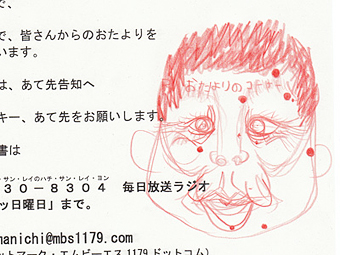 で、
で、皆さんからのおたよりを
います。
は、あて先告知へ
おたよりのコーナー
キー、あて先をお願いします。
書は
・サン・レイのハチ・サン・レイ・ヨン
３０－８３０４　毎日放送ラジオ
ッ日曜日」まで。
manichi@mbs1179.com
ットマーク・エムビーエス1179ドットコム）